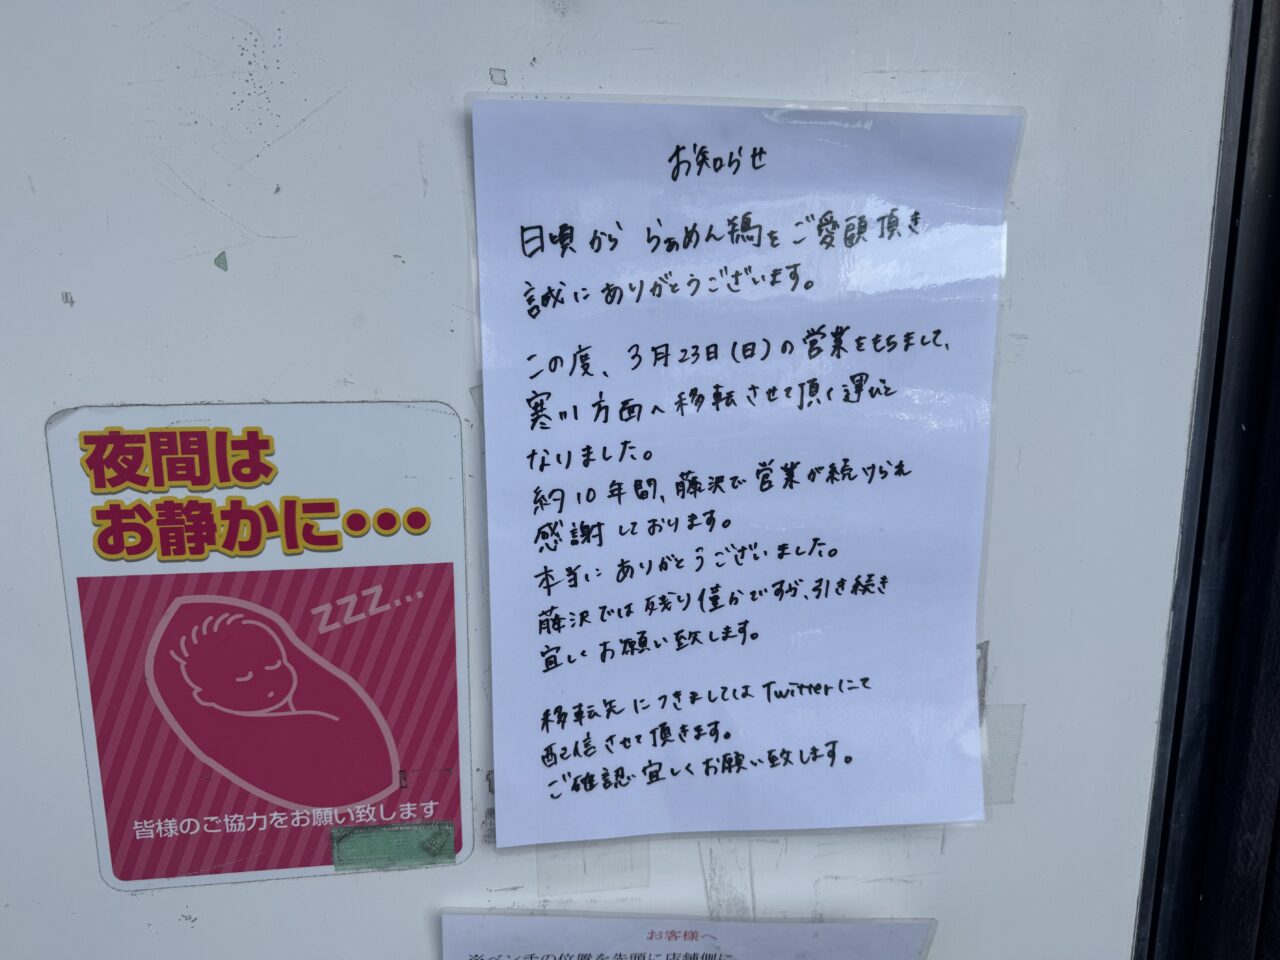 お知らせ
日頃から らぁめん鶏をご愛顧頂き
誠にありがとうございます。
この度、3月23日(日)の営業をもちまして、
寒川方面へ移転させて頂く運びと
なりました。
約10年間、藤沢で営業が続けられ
感謝しております。
本当にありがとうございました。
藤沢では残り僅かですが、引き続き
宜しくお願い致します。
移転先につきましてはTwitterにて
配信させて頂きます。
ご確認宜しくお願い致します。
夜間は
お静かに・・・
ZZZ...
皆様のご協力をお願い致します
お客様へ
※ベンチの位置を先頭に店舗側に